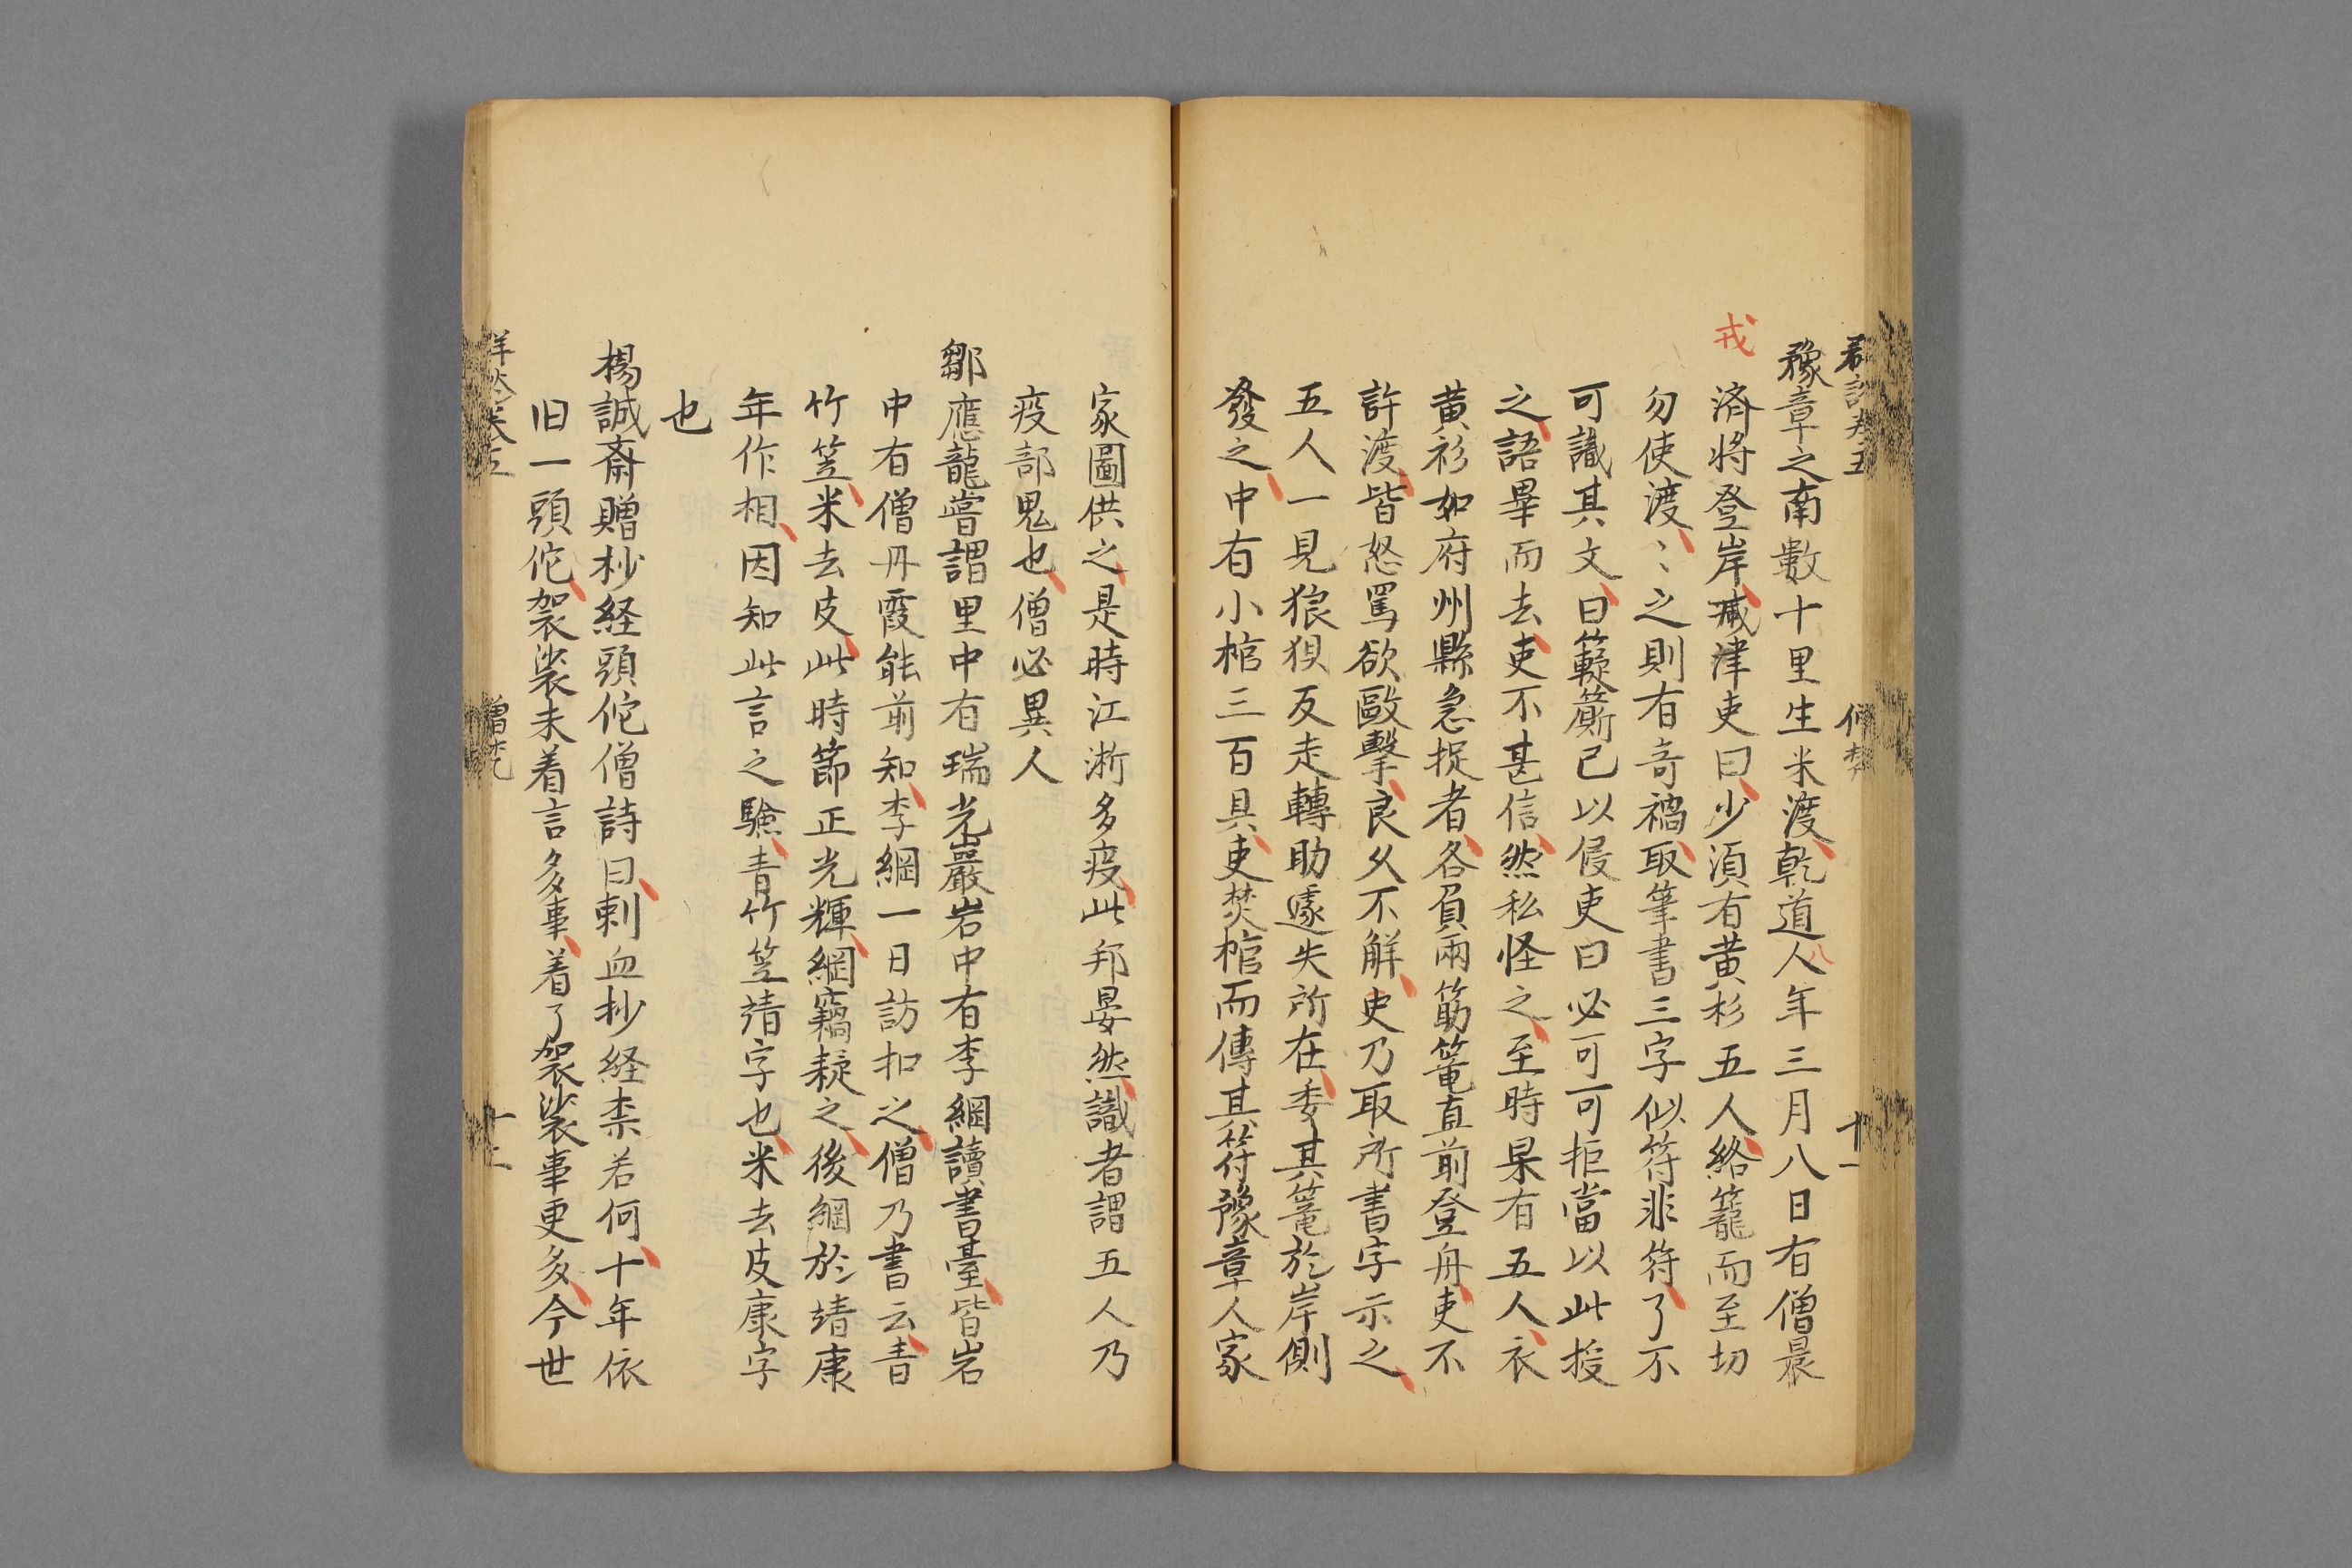 豫章之南數十里生米渡乾道八人年三月八日有僧晨
戒
済將登岸津吏曰少湏有黄杉五人絡籠而至切
勿使渡〻之則有竒禍取筆書三字似符非符了不
可識其文曰䉒𥴈已以侵吏曰必可可拒當以此授
之語畢而去吏不甚信然私怪之至時杲有五人衣
黄衫如府州縣急捉者各負兩筯篭直前登舟吏不
許渡皆怒罵欲毆擊良久不解吏乃取所書字示之
五人一見狼狽反走轉助遽失所在委其篭於岸側
發之中有小棺三百具吏焚棺而傳其符豫章人家
家圖供之是時江淅多疫此邦晏然識者謂五人乃
疫部鬼也僧必異人
鄒應龍嘗謂里中有瑞光巖岩中有李綱讀書臺皆岩
中有僧丹霞能前知李綱一日訪扣之僧乃書云青
竹笠米去皮此時節正光輝綱竊疑之後綱於靖康
年作相因知此言之驗青竹笠靖字也米去皮康字
也
楊誠斎贈抄経頭佗僧詩曰刺血抄経柰若何十年依
旧一頭佗袈裟未着言多事着了袈裟事更多今世